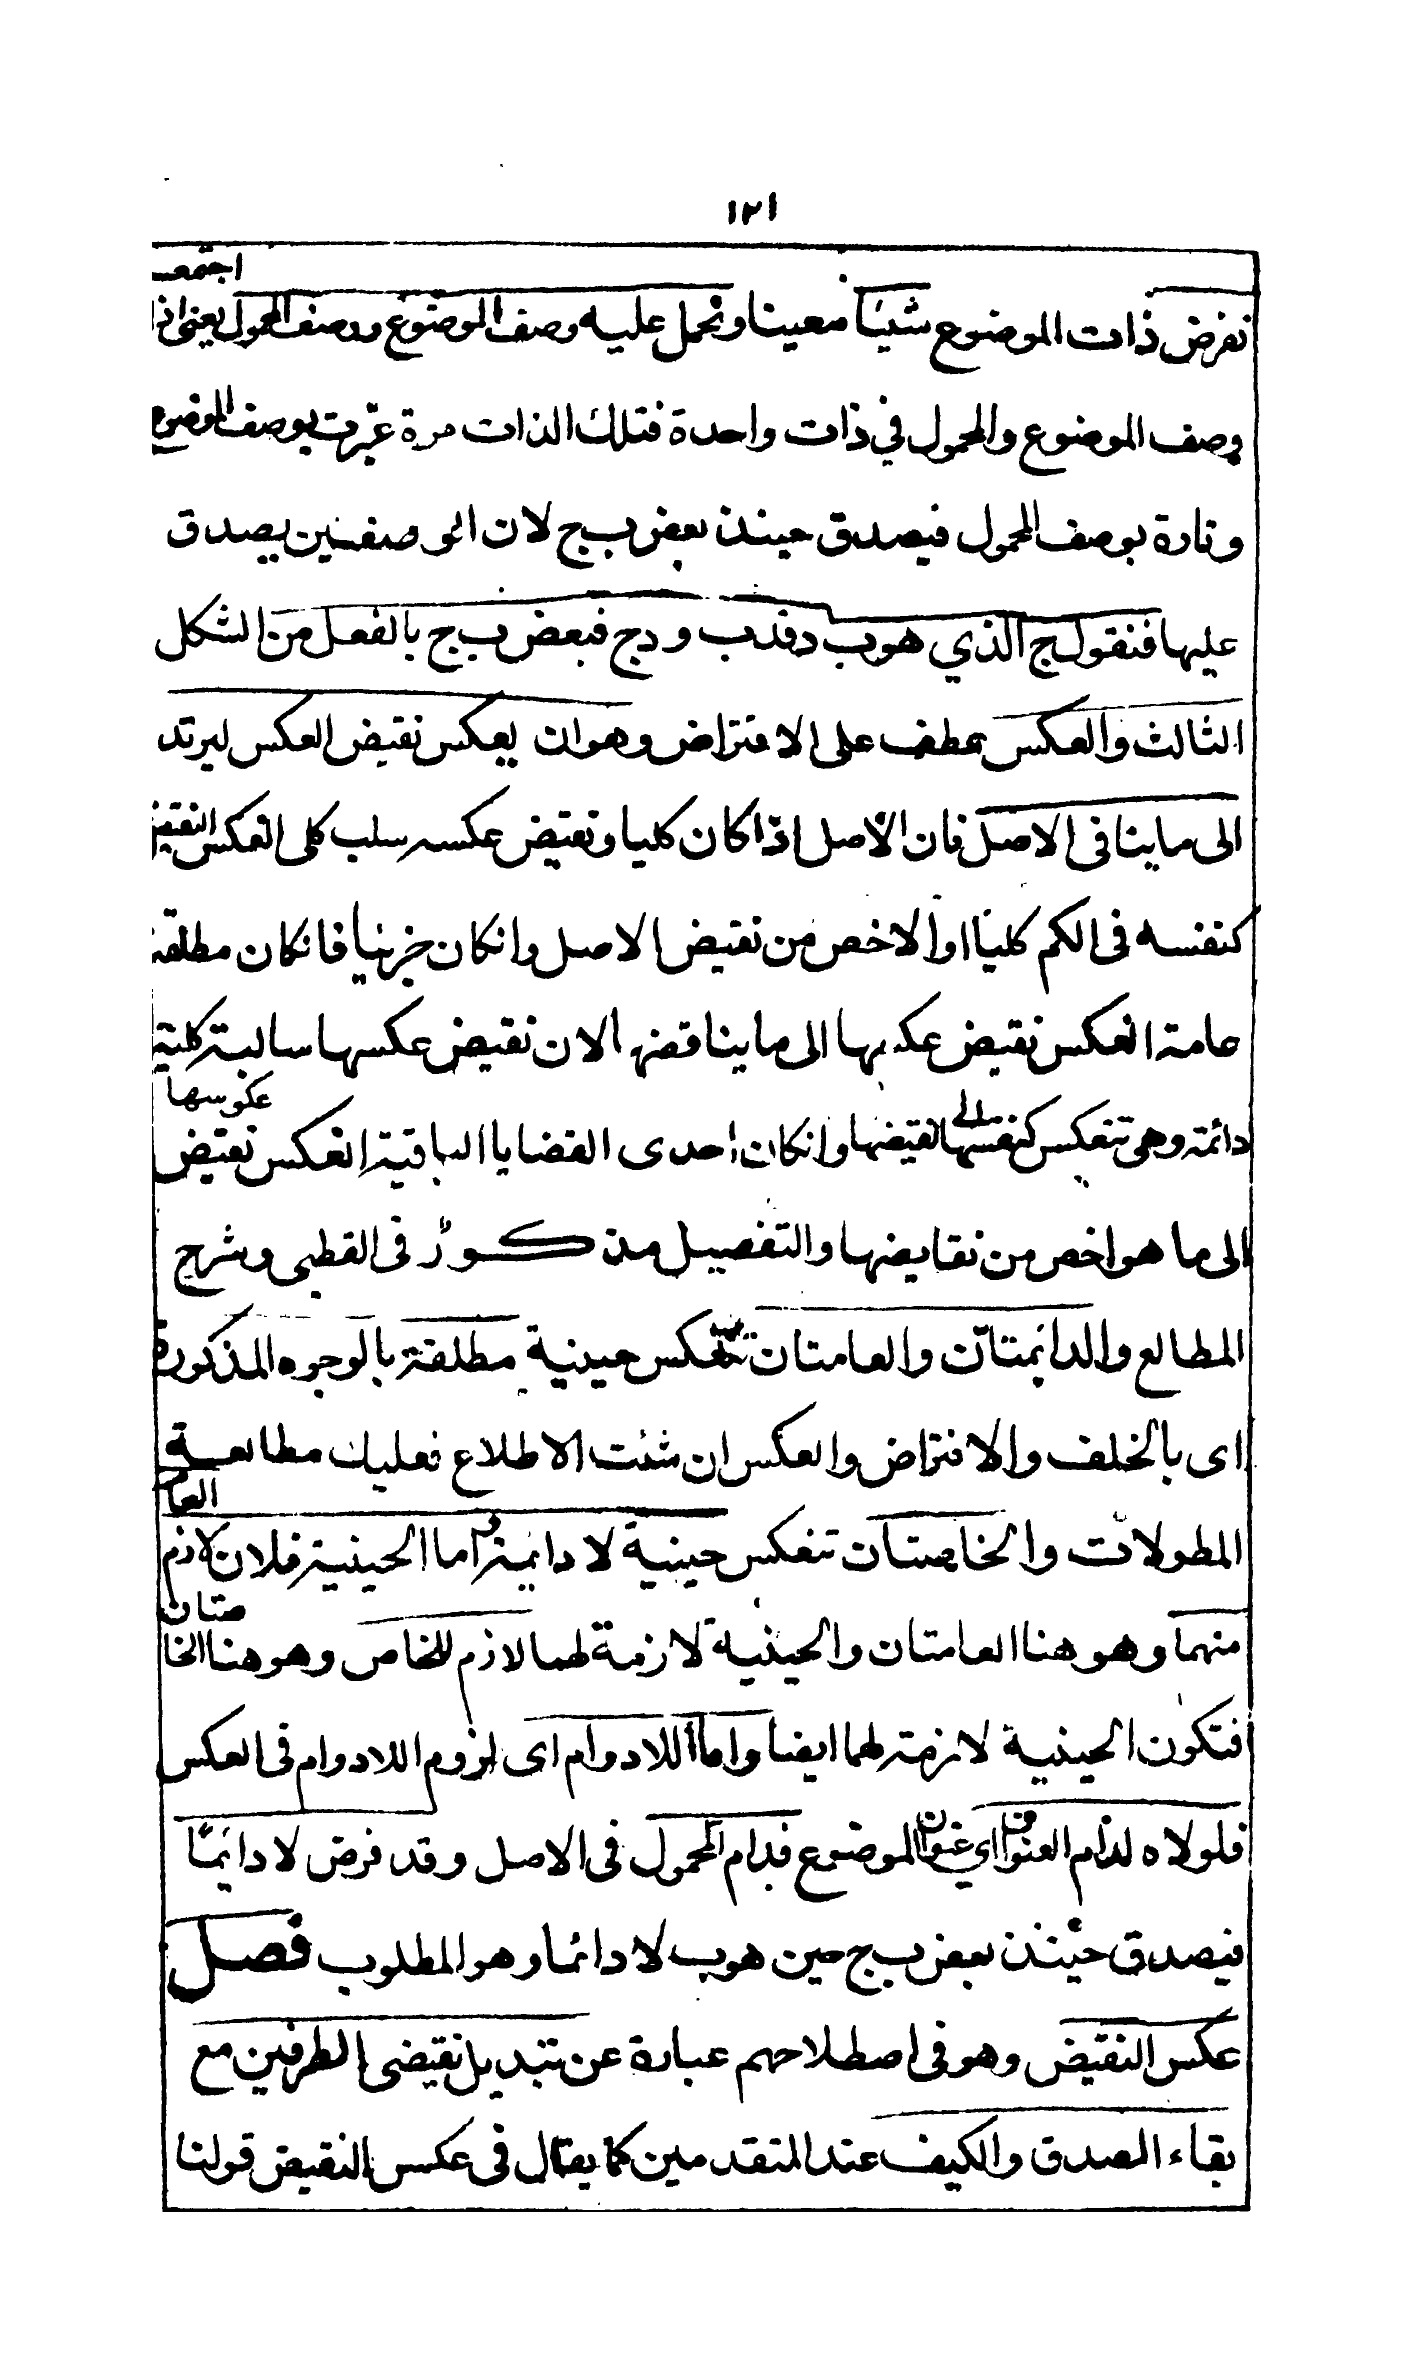 ١٢١
نفرض ذات الموضوع شيئا معينا ونحمل عليه وصف الموضوع ووصف المحمول يعنى اذا اجتمع
وصف الموضوع والمحمول في ذات واحدة فتلك الذات مرة عبّرت بوصف الموضوع
وتارة بوصف المحمول فيصدق حينئذ بعض ب ج لان الوصفين يصدق
عليها فنقول ج الذي هو ب د فد ب ود ج فبعض ب ج بالفعل من الشكل
الثالث والعكس عطف على الافتراض وهو ان يعكس نقيض العكس ليرتد
الى ماينا فى الاصل فان الاصل اذا كان كليا ونقيض عكسه سلب كلى انعكس النقيض
كنفسه فى الكم كليا او الاخص من نقيض الاصل وانكان جزئيا فانكان مطلقة
عامة انعكس نقيض عكسها الى مايناقضها لان نقيض عكسها سالبة كلية
دائمة وهى تنعكس كنفسها الى نقيضها وانكان احدى القضايا الباقية انعكس نقيض عكوسها
الى ما هو اخص من نقايضها والتفصيل مذكور فى القطبى وشرح
المطالع والدائمتان والعامتان تنعكس حينية مطلقة بالوجوه المذكورة
اى بالخلف والافتراض والعكس ان شئت الاطلاع فعليك مطالعة
المطولات والخاصتان تنعكس حينية لا دائمة اما الحينية فلان لازم العا
منهما وهو هنا العامتان والحينية لازمة لهما لازم للخاص وهو هنا الخا صتان
فتكون الحينية لازمة لهما ايضا واما اللادوام اى لزوم اللادوام فى العكس
فلولاه لدام العنوان اى عنوان الموضوع فدام المحمول فى الاصل وقد فرض لا دائمًا
فيصدق حينئذ بعض ب ج حين هو ب لا دائما وهو المطلوب فصل
عكس النقيض وهو فى اصطلاحهم عبارة عن تبديل نقيضى الطرفين مع
بقاء الصدق والكيف عند المتقدمين كما يقال فى عكس النقيض قولنا